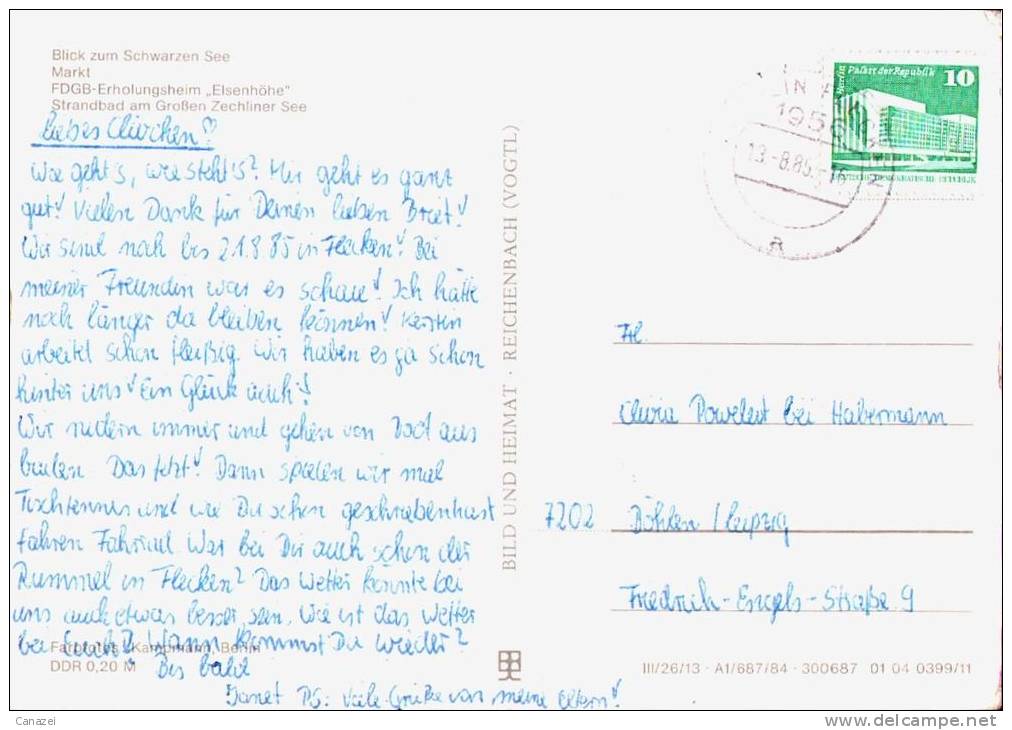 Blick zum Schwarzen See
Markt
FDGB-Erholungsheim „Elsenhöhe"
Strandbad am Großen Zechliner See
liebes Clivchen ♡
Wie geht's, wie steht's? Mir geht es ganz
gut! Vielen Dank für Deinen lieben Brief!
Wir sind noch bis 21.8.85 in Flecken! Bei
meiner Freundin war es schau! Ich hätte
noch länger da bleiben können! Kerstin
arbeitet schon fleißig. Wir haben es ja schon
hinter uns! Ein Glück auch!
Wir rudern immer und gehen von Boot aus
baden. Das fetzt! Dann spielen wir mal
Tischtennis und wie Du schon geschrieben hast
fahren Fahrrad. War bei Dir auch schon der
Rummel in Flecken? Das Wetter könnte bei
uns auch etwas besser sein. Wie ist das Wetter
bei Euch? Wann kommst Du wieder?
Bis bald
Janet PS: Viele Grüße von meine Eltern!
Farbfotos: Kampmann, Berlin
DDR 0,20 M
BILD UND HEIMAT · REICHENBACH (VOGTL)
Berlin Palast der Republik 10
DEUTSCHE DEMOKRATISCHE REPUBLIK
1956
13.-8.85
a
Frl.
Clivia Poweleit bei Habermann
7202 Döhlen / Leipzig
Friedrich-Engels-Straße 9
III/26/13 · A1/687/84 · 300687 01 04 0399/11
Canazei
http://www.delcampe.net